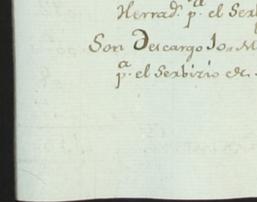 Herrad.ˢ p.ª el Serb
Son Descargo 10„ M
p.ª el Serbizio etc.